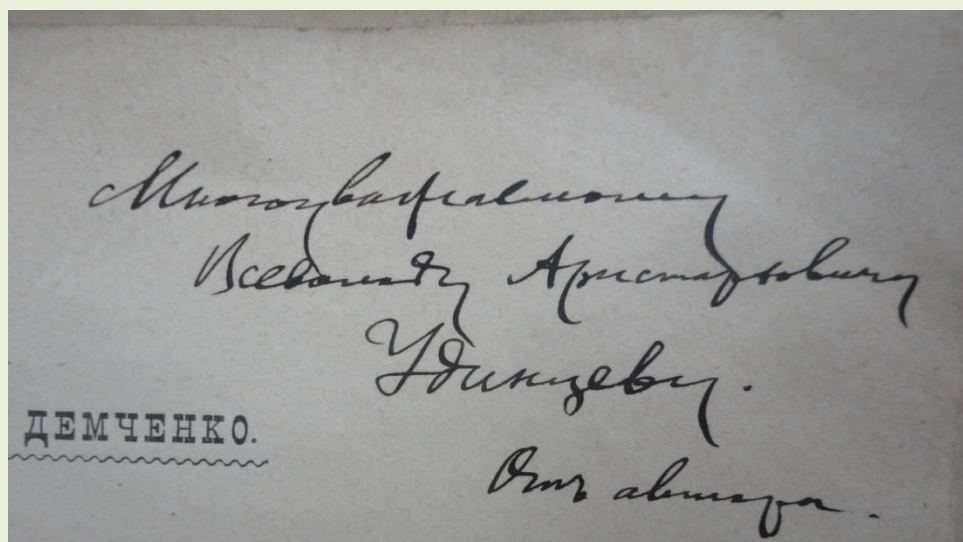 Многоуважаемому
Всеволоду Аристарховичу
Удинцеву.
ДЕМЧЕНКО.
Отъ автора.